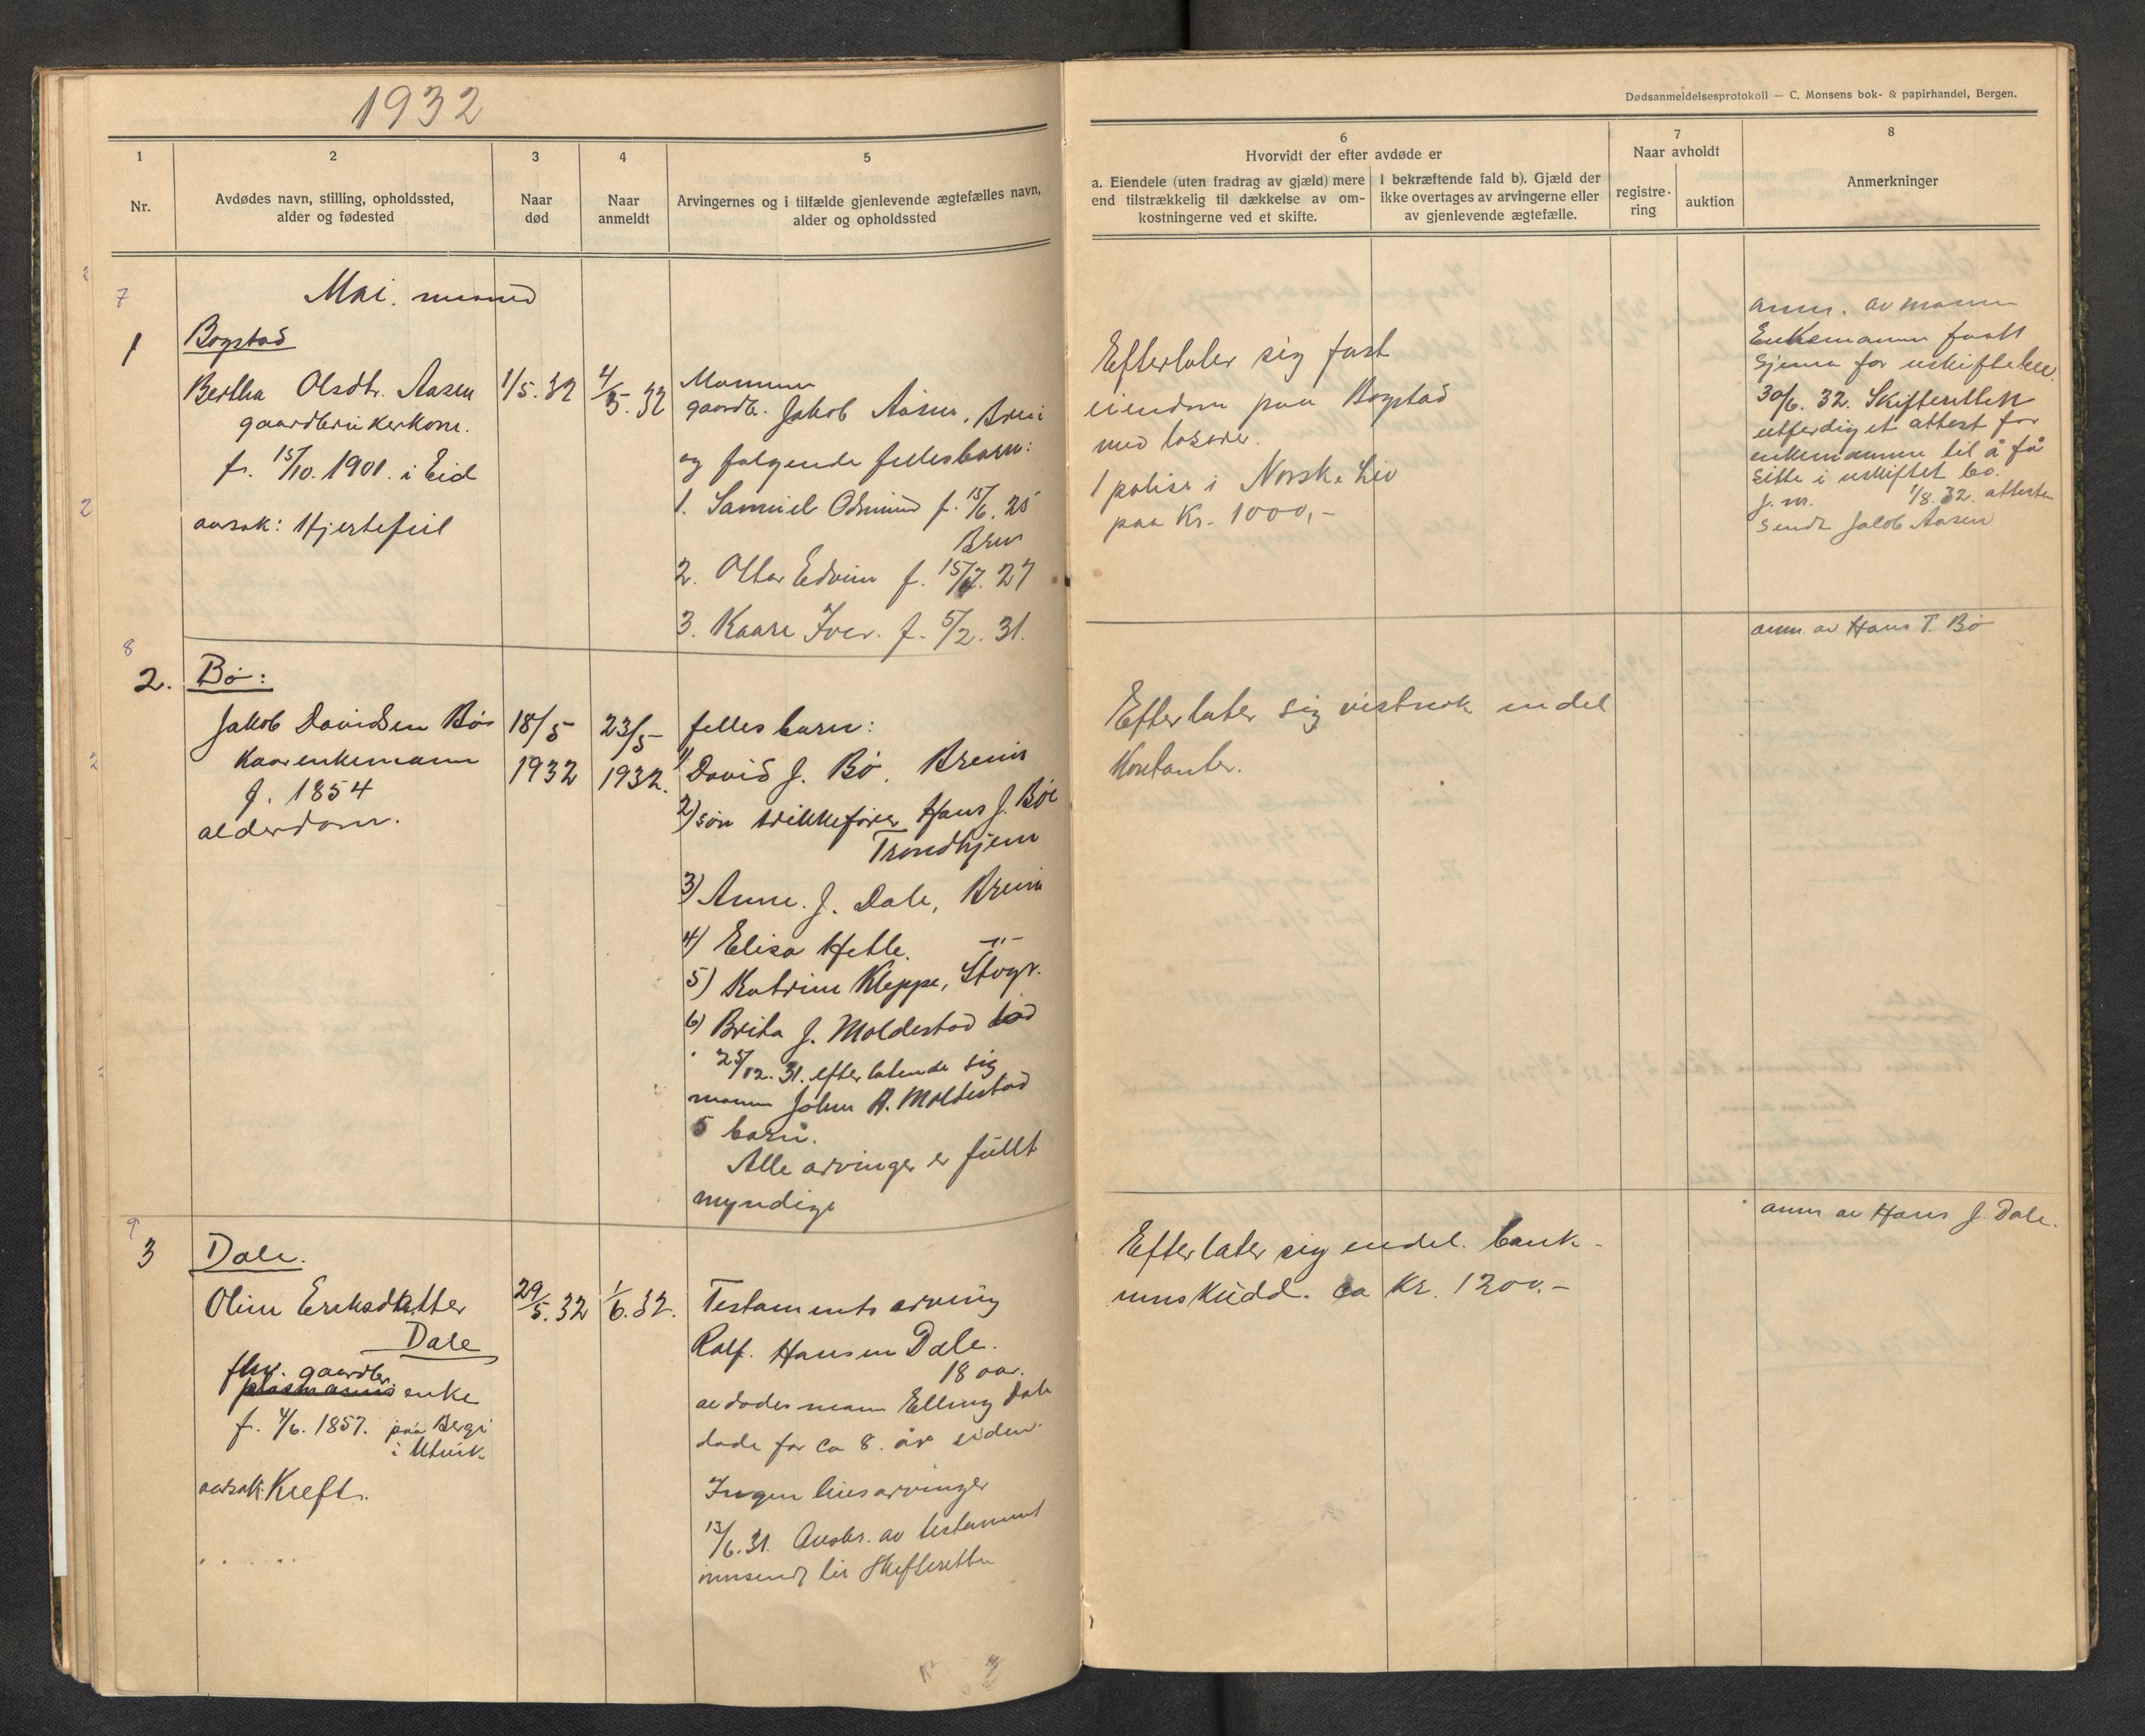 1932
Dødsanmeldelsesprotokoll — C. Monsens bok- & papirhandel, Bergen.
1
Nr.
2
Avdødes navn, stilling, opholdssted,
alder og fødested
3
Naar
død
4
Naar
anmeldt
5
Arvingernes og i tilfælde gjenlevende ægtefælles navn,
alder og opholdssted
6
Hvorvidt der efter avdøde er
a. Eiendele (uten fradrag av gjæld) mere
end tilstrækkelig til dækkelse av om-
kostningerne ved et skifte.
I bekræftende fald b). Gjæld der
ikke overtages av arvingerne eller
av gjenlevende ægtefælle.
7
Naar avholdt
registre-
ring
auktion
8
Anmerkninger
7
Mai. maaned
1
Bogstad
Bertha Olsdtr. Aasen
gaardbrukerkone.
f. 15/10. 1901. i Eid
aarsak: Hjertefeil
1/5. 32
4/5. 32
Mannen
gaardb. Jakob Aasen, Breim
og følgende fellesbarn:
1. Samuel Odmund f. 15/6. 25
Breim
2. Ottar Edvin f. 15/7. 27
3. Kaare Iver. f. 5/2. 31.
Efterlater sig fast
eiendom paa Bogstad
med løsøre.
1 polise i Norske Liv
paa Kr. 1000,-
anm. av mannen
Enkemannen faatt
skjema for uskiftebev.
30/6. 32. Skifteretten
utferdiget attest for
enkemannen til å få
sitte i uskiftet bo.
J. nr. 1/8. 32. attesten
sendt Jakob Aasen
8
2.
Bø:
Jakob Davidsen Bø
Kaarenkemann
f. 1854
alderdom.
18/5
1932
23/5
1932.
felles barn:
1) David J. Bø, Breim
2) søn trikkefører Hans J. Bø
Trondhjem
3) Anne. J. Dale, Breim
4) Elisa Hetle. -"-
5) Katrine Kleppe, Stogr.
6) Brita J. Moldestad død
25/12. 31. efterlatende sig
mann Johan A. Moldestad
5 barn.
Alle arvinger er fullt
myndige
Efterlater sig vistnok endel
Kontanter.
anm. av Hans T. Bø
9
3
Dale.
Oline Eriksdatter
Dale
fhv. gaardbr.
plasmanns enke
f. 4/6. 1857. paa Berge
i Utvik.
aarsak: Kreft.
29/5. 32
1/6. 32.
Testaments arving
Ralf. Hansen Dale.
18 aar.
avdødes mann Elling Dale
døde for ca 8. år siden.
Ingen livsarvinger
13/6. 31. Avskr. av testament
innsendt til Skifteretten
Efterlater sig endel. bank-
innskudd. ca Kr. 1200.-
anm av Hans J. Dale.